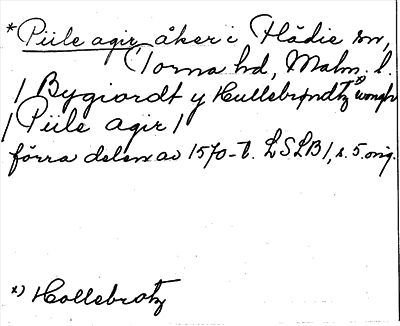 *Piile agir åker i Flädie sn,
Torna hd, Malm. l.
/ Bygiordt y Hullebrøndtz x) wongh
/ Piile agir /
förra delen av 1570-t. LSLB 1, s. 5. orig.
x) Hollebrotz